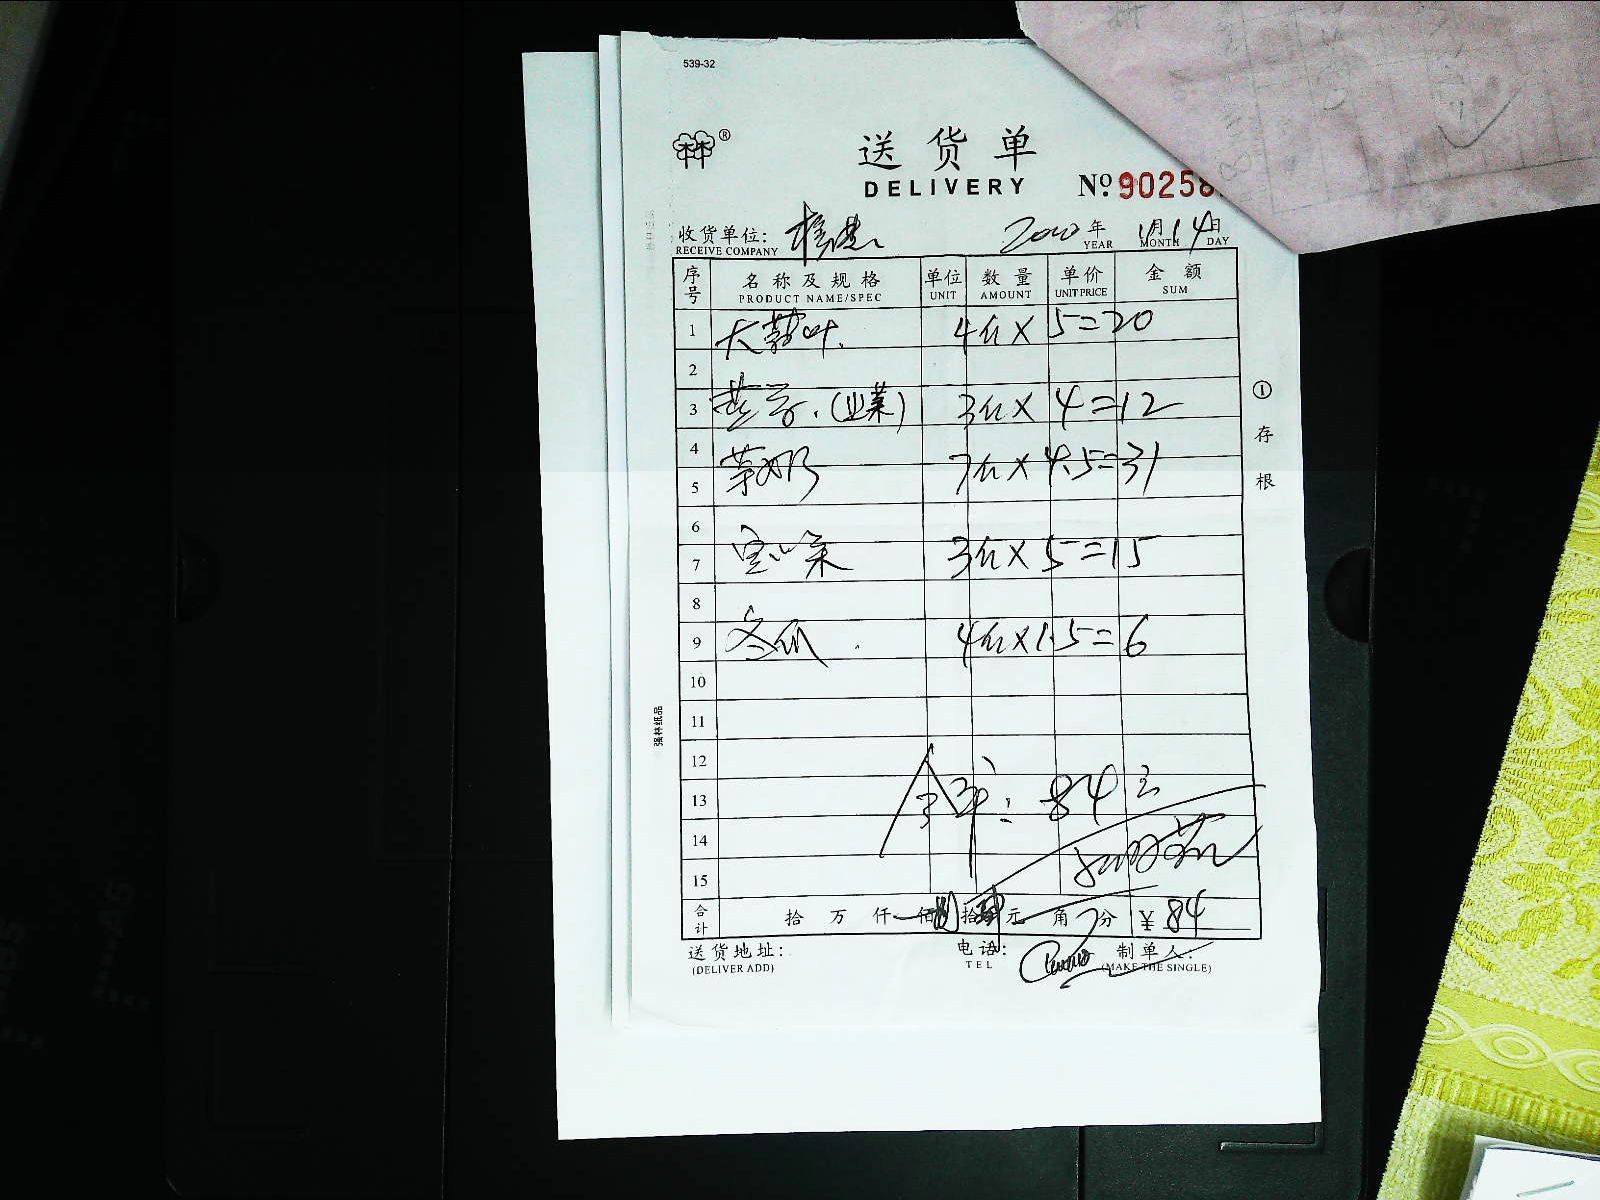 539-32
林®
送货单
DELIVERY
№ 90258
收货单位:
RECEIVE COMPANY
年 YEAR 1月 MONTH 14日 DAY
序号 名称及规格 单位 数量 单价 金额
PRODUCT NAME/SPEC UNIT AMOUNT UNIT PRICE SUM
1 大蒜叶. 4斤 × 5=20
2
3 (业菜) 3斤 × 4=12
4
5 7斤 × 4.5=31
6
7 3斤 × 5=15
8
9 冬瓜 4斤×1.5=6
10
11
12
13 84元
14
15
合计 拾 万 仟 佰 拾 元 角 分 ¥84
送货地址: 电话: 制单人:
(DELIVER ADD) TEL (MAKE THE SINGLE)
①存根
强林纸品